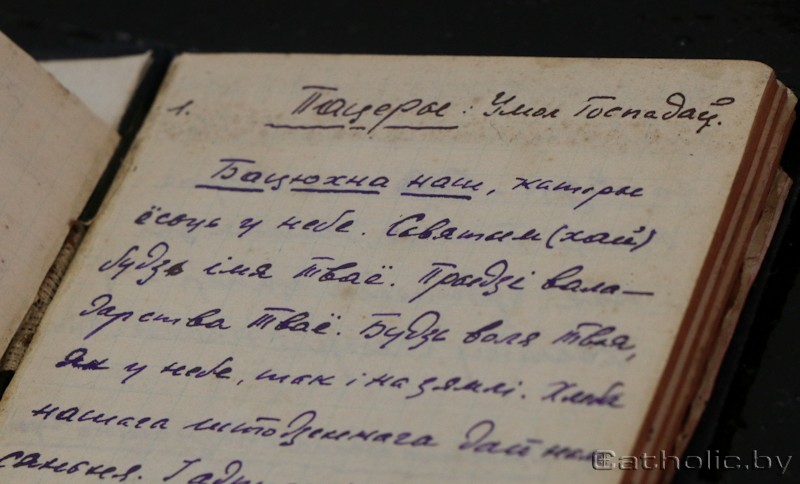 1. Пацеры: Умол Госпадаў.
Бацюхна наш, каторы
ёсць у небе. Святым (хай)
будзь імя тваё. Прыдзі вала-
дарства тваё. Будзь воля твая,
як у небе, так і на зямлі. Хлеба
нашага штодзеннага дай нам
саньня. І адпу
Catholic.by